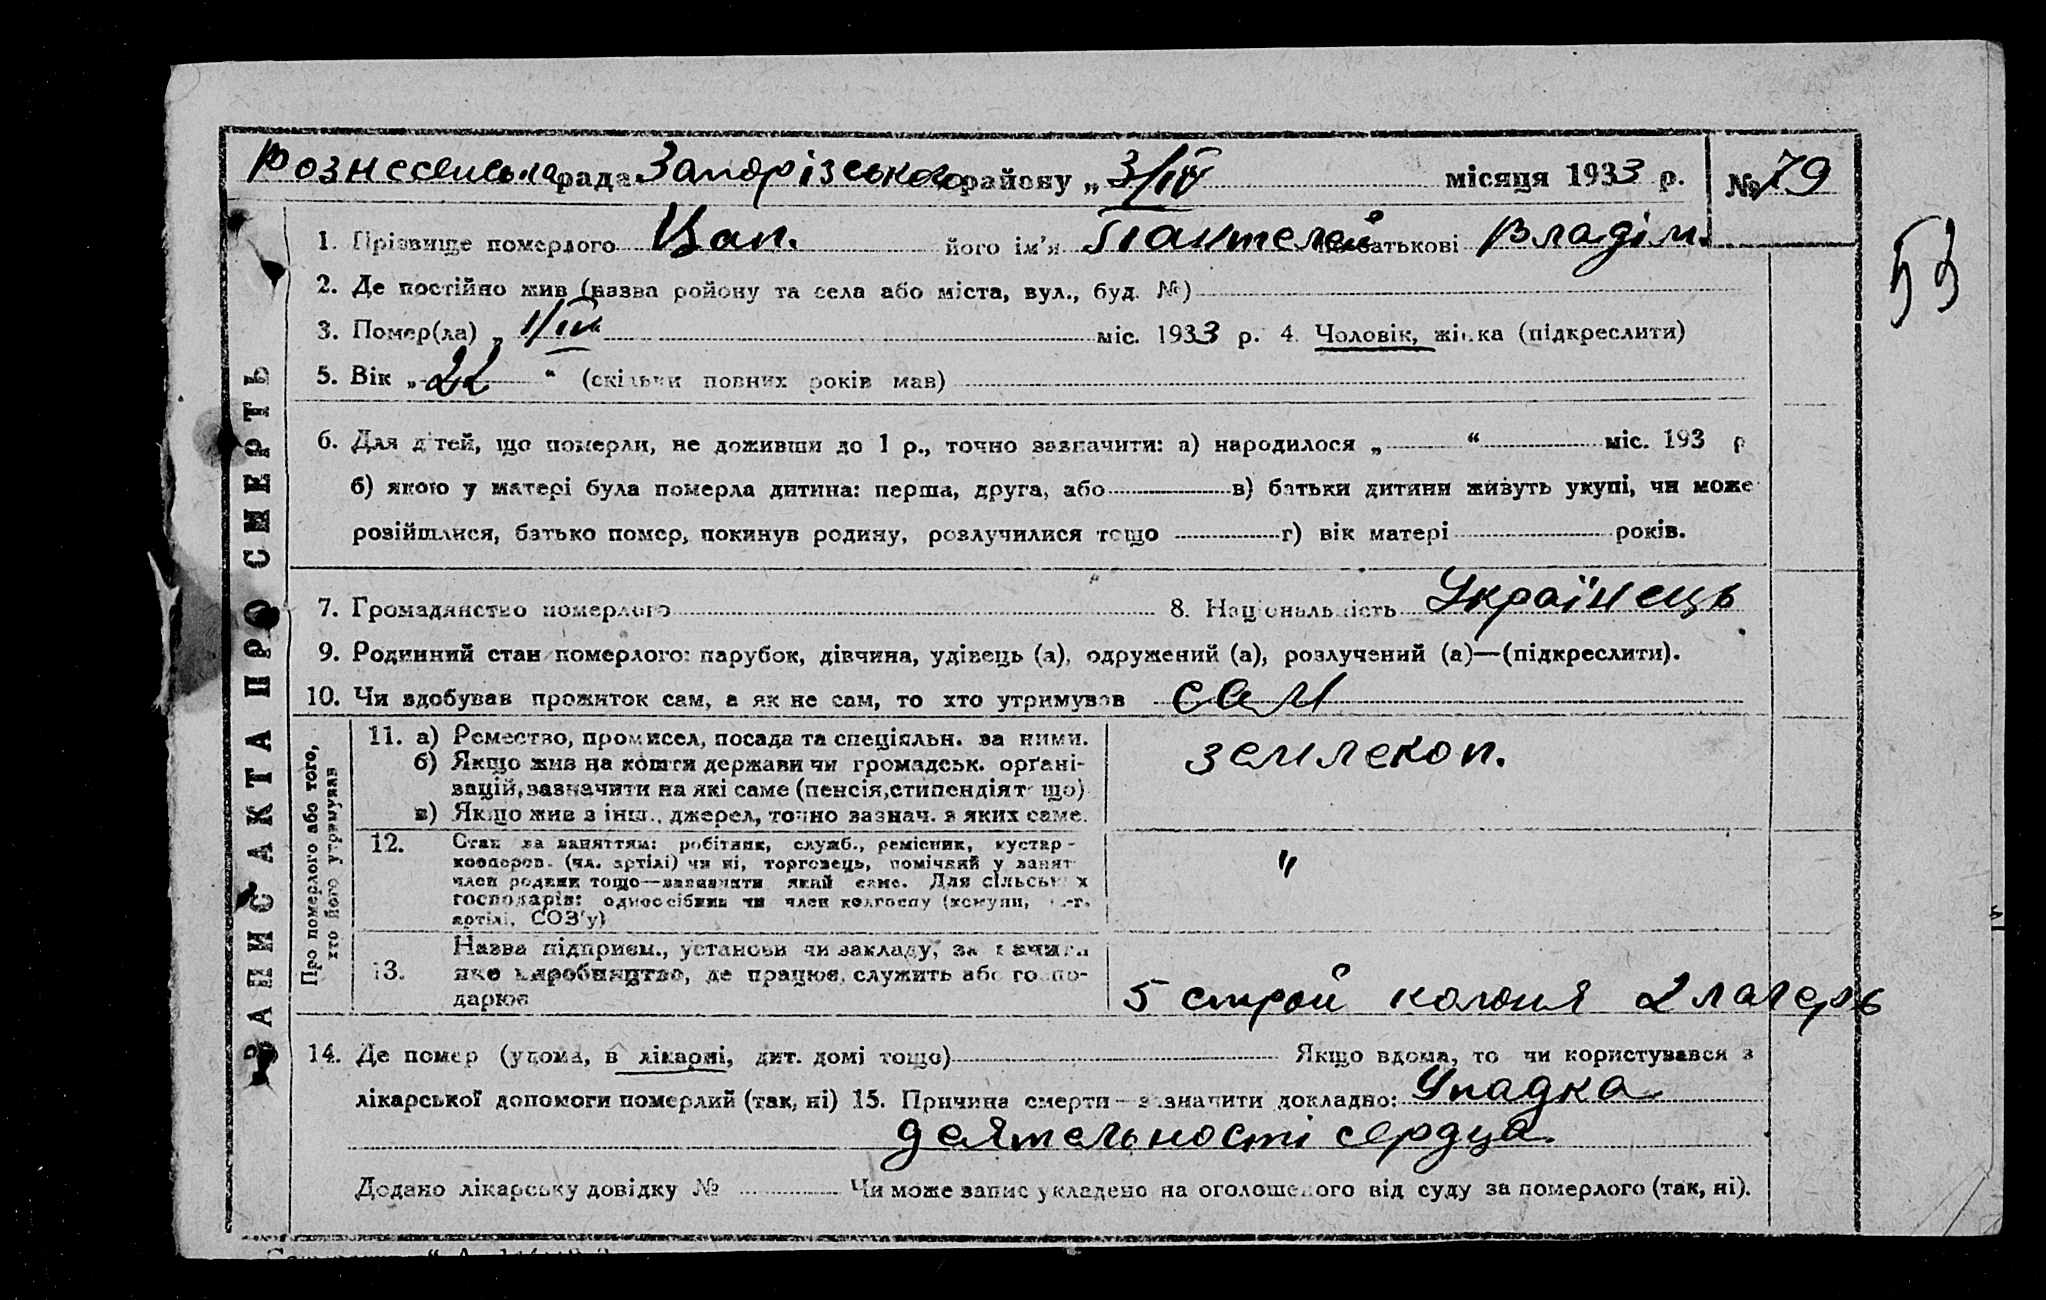 Вознесенська рада Запорізького району „ 3/IV місяця 1933 р. № 79
1. Прізвище померлого Цап. його ім'я Пантелей по батькові Владім.
53
2. Де постійно жив (назва району та села або міста, вул., буд. №)
3. Помер(ла) „ 1/IV “ міс. 1933 р. 4. Чоловік, жінка (підкреслити)
5. Вік „ 22 “ (скільки повних років мав)
6. Для дітей, що померли, не доживши до 1 р., точно зазначити: а) народилося „ “ міс. 193 р
б) якою у матері була померла дитина: перша, друга, або в) батьки дитини живуть укупі, чи може
розійшлися, батько помер, покинув родину, розлучилися тощо г) вік матері років.
7. Громадянство померлого 8. Національність Українець
9. Родинний стан померлого: парубок, дівчина, удівець (а), одружений (а), розлучений (а)—(підкреслити).
10. Чи здобував прожиток сам, а як не сам, то хто утримував сам
ЗАПИС АКТА ПРО СМЕРТЬ
Про померлого або того,
хто його утримував
11. а) Ремество, промисел, посада та спеціяльн. за ними.
б) Якщо жив на кошти держави чи громадськ. орґані-
зацій, зазначити на які саме (пенсія, стипендія т що)
в) Якщо жив з інш., джерел, точно зазнач. з яких саме.
землекоп.
12. Стан за заняттям: робітник, служб., ремісник, кустар-
кооперов. (чл. артілі) чи ні, торговець, помічний у занят
член родини тощо—зазначити який саме. Для сільських
господарів: одноосібник чи член колгоспу (комуни, с.-г.
артілі, СОЗ'у)
"
13. Назва підприєм., установи чи закладу, зазначити
яке виробництво, де працює, служить або госпо-
дарює
5 строй колонія 2 лагерь
14. Де помер (удома, в лікарні, дит. домі тощо) Якщо вдома, то чи користувався з
лікарської допомоги померлий (так, ні) 15. Причина смерти—зазначити докладно: Упадка
деятельності сердца.
Додано лікарську довідку № Чи може запис укладено на оголошеного від суду за померлого (так, ні).